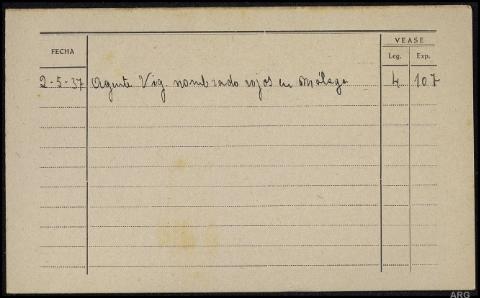 FECHA
VEASE
Leg. Exp.
2-5-37 Agente Vig. nombrado rojos en Málaga 4 107
ARG